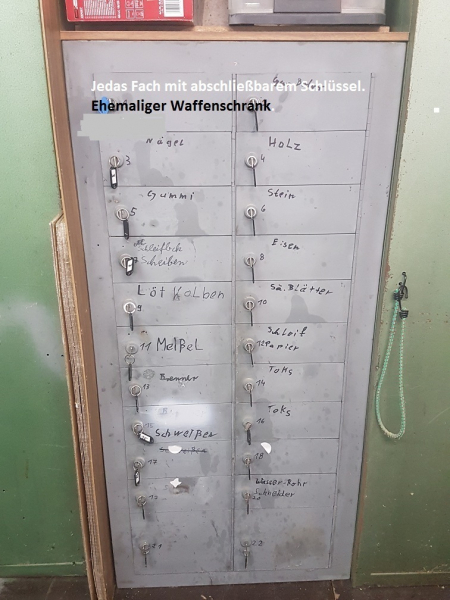 Jedas Fach mit abschließbarem Schlüssel.
Ehemaliger Waffenschrank
Nägel
3
Holz
4
Gummi
5
Stein
6
Scheiben
Eisen
8
Löt Kolben
9
Sä. Blätter
10
Meißel
11
Schleif
12 Papier
Brenner
13
Toks
14
Schweißer
15
Toks
16
17
18
Wasser-Rohr
Schneider
21
22